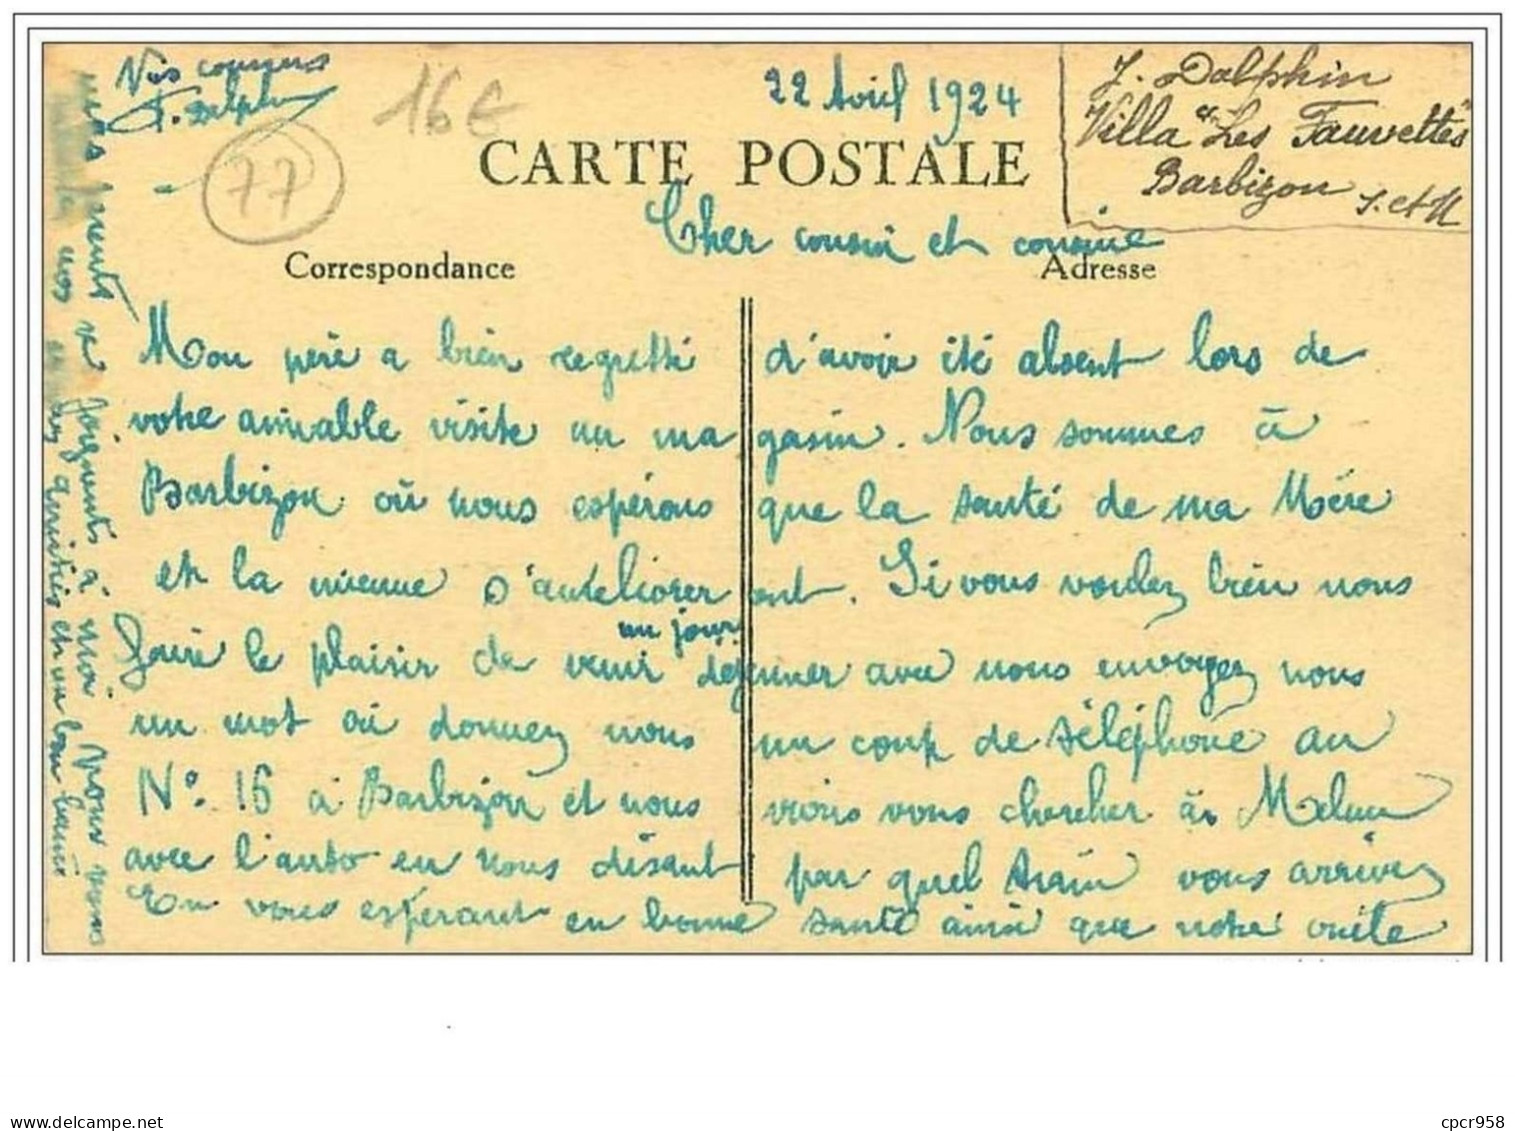 22 Avril 1924
J. Dalphin
Villa "Les Fauvettes"
Barbizon S. et M
16€
77
CARTE POSTALE
Correspondance
Adresse
Cher cousin et cousine
Mon père a bien regretté d'avoir été absent lors de
votre aimable visite au magasin. Nous sommes à
Barbizon où nous espérons que la santé de ma Mère
et la mienne s'amélioreront. Si vous voulez bien nous
faire le plaisir de venir un jour déjeuner avec nous envoyez nous
un mot où donnez nous un coup de téléphone au
N° 16 à Barbizon et nous irions vous chercher à Melun
avec l'auto en nous disant par quel train vous arrivez
En vous espérant en bonne santé ainsi que notre
mes parents se joignent à moi pour vous
nos amitiés et un bon baiser
Vos cousins
cpcr958